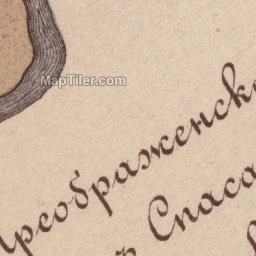 MapTiler.com
Преображенск
Спаса